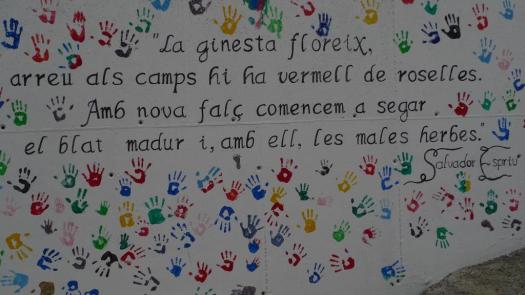 "La ginesta floreix,
arreu als camps hi ha vermell de roselles.
Amb nova falç comencem a segar
el blat madur i, amb ell, les males herbes."
Salvador Espriu